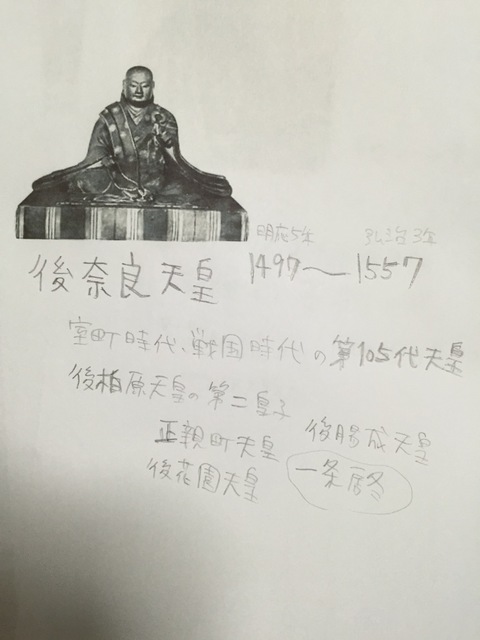 明応5年 弘治3年
後奈良天皇 1497〜1557
室町時代、戦国時代の第105代天皇
後柏原天皇の第二皇子
正親町天皇 後陽成天皇
後花園天皇 一条房冬